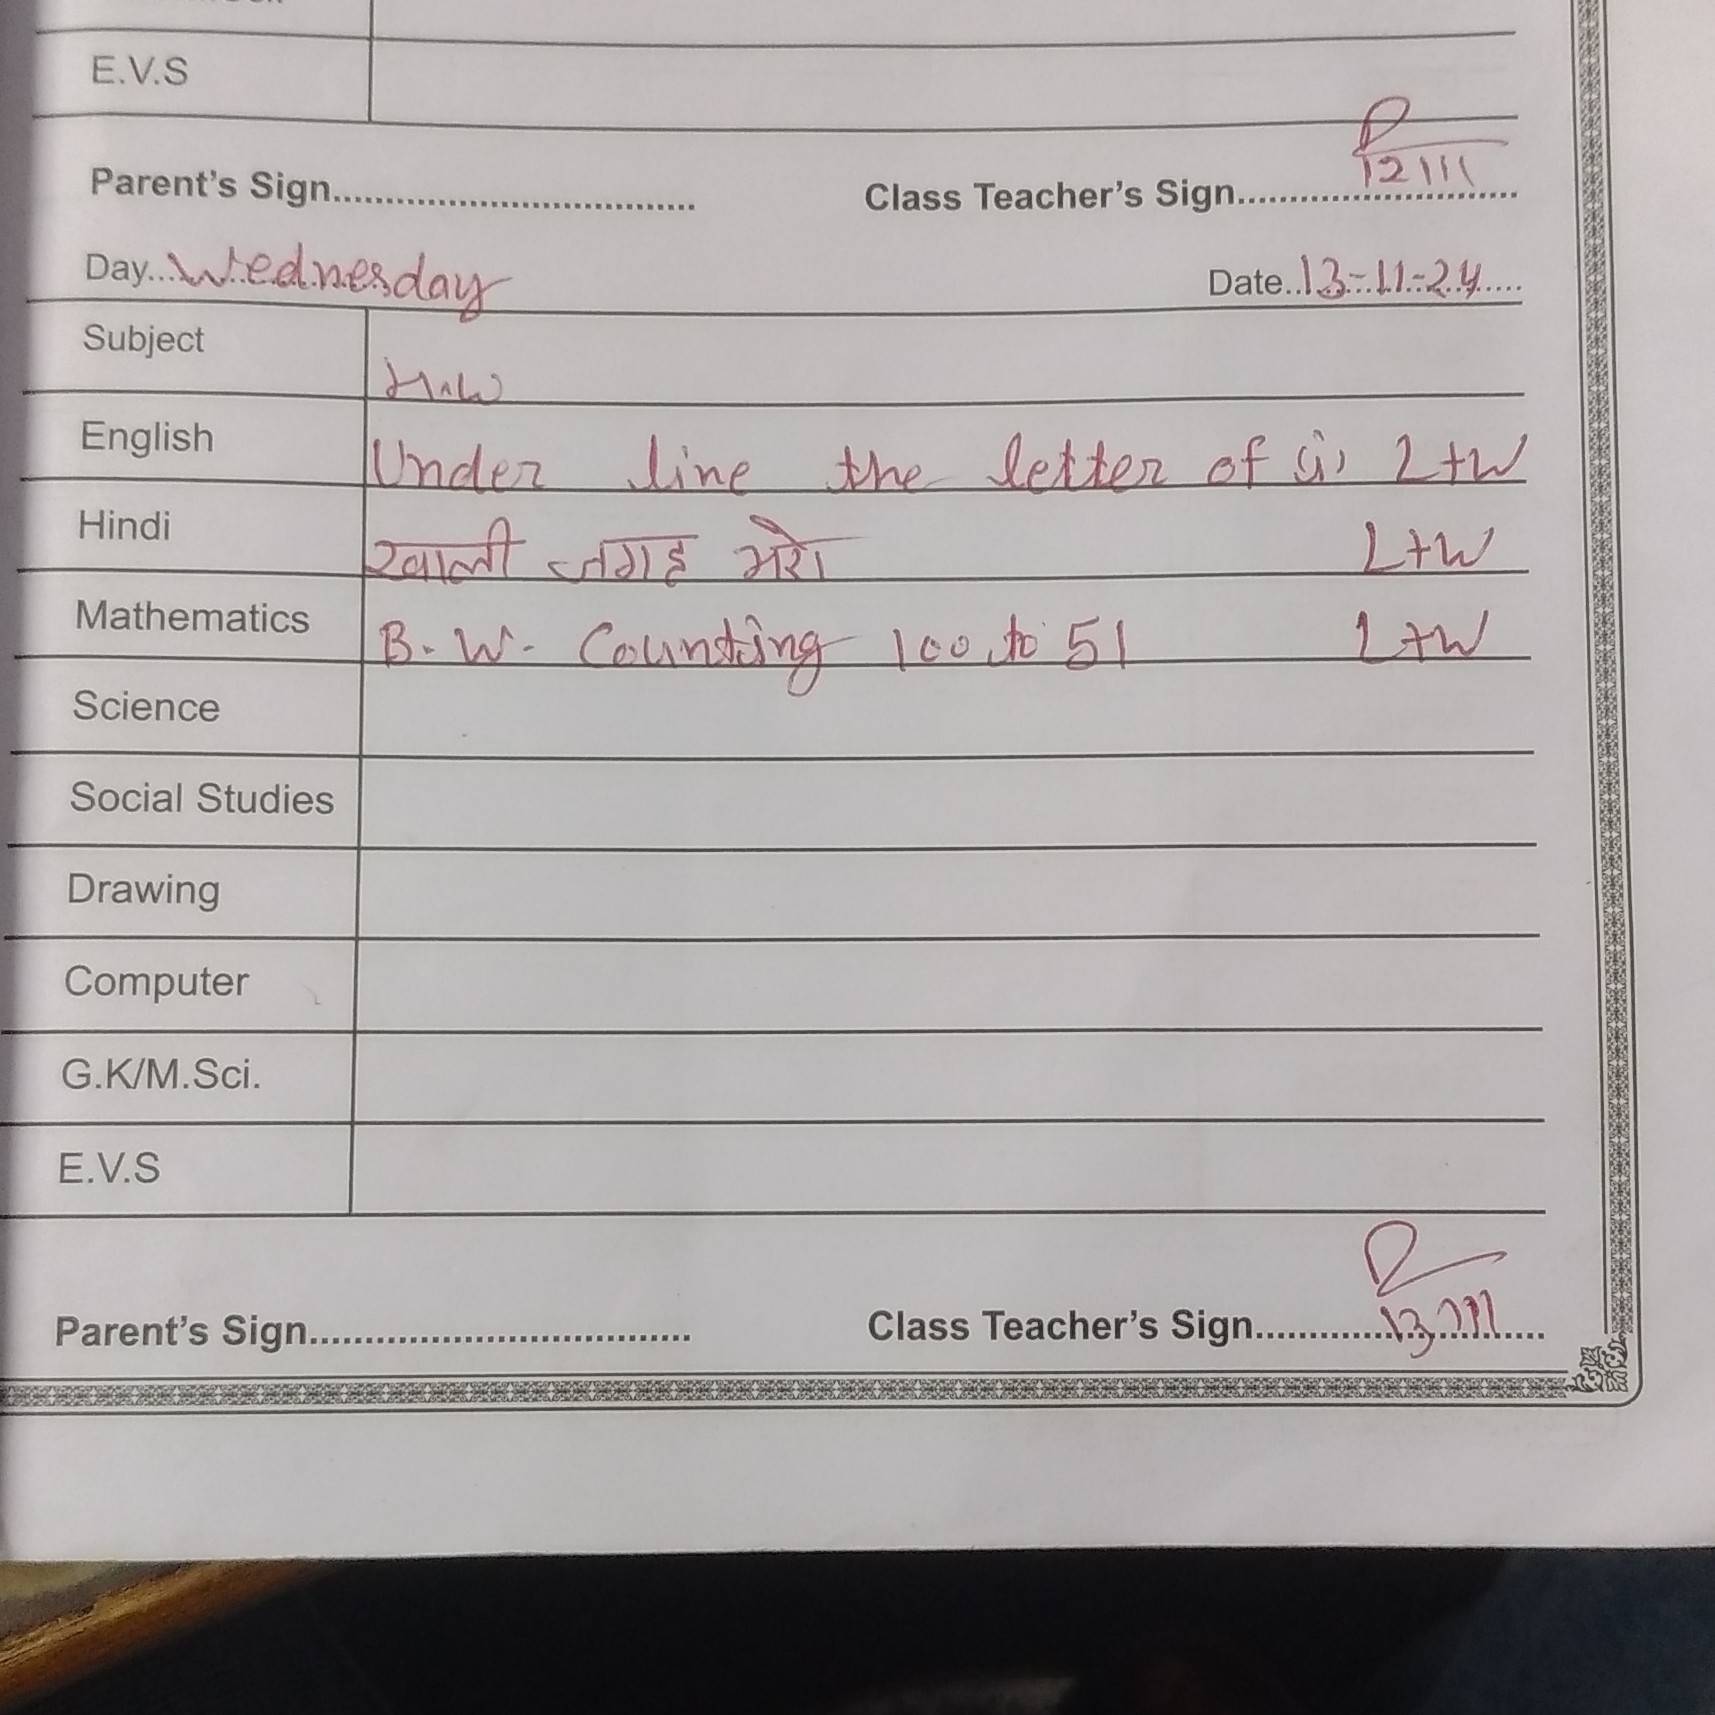 E.V.S
Parent's Sign.................................... Class Teacher's Sign.............................
12/11
Day...Wednesday Date..13-11-24.....
Subject H.W
English Under line the letter of L+W
Hindi खाली जगह भरो L+W
Mathematics B.W. Counting 100 to 51 L+W
Science
Social Studies
Drawing
Computer
G.K/M.Sci.
E.V.S
Parent's Sign.................................... Class Teacher's Sign.............................
13/11